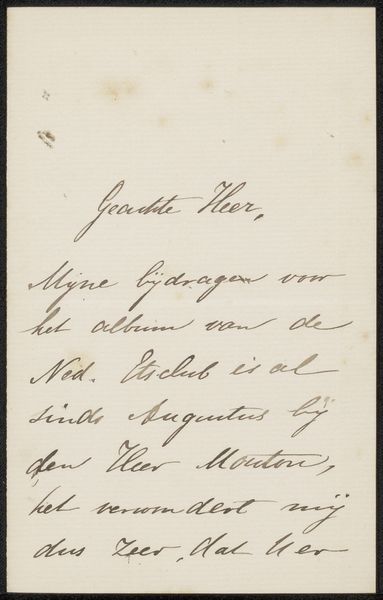 Geachte Heer,
Mijne bijdragen voor
het album van de
Ned. Etsclub is al
sinds Augustus bij
den Heer Mouton,
het verwondert mij
dus zeer, dat U er